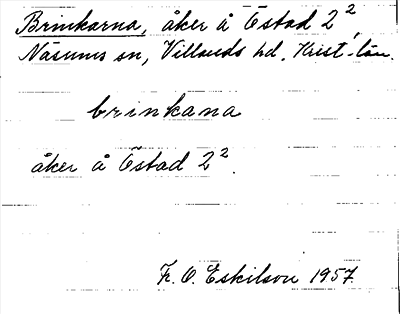 Brinkarna, åker å Östad 2²,
Näsums sn, Villands hd. Krist. län.
brinkana
åker å Östad 2².
Fr. O. Eskilson 1957.